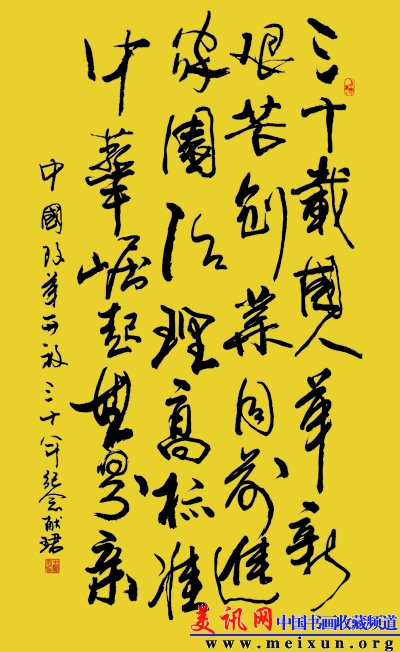 三十載國人革新
艰苦创業向前進
家園治理高标准
中華崛起世界亲
中國改革开放三十年纪念献珺
美讯网 中国书画收藏频道
www.meixun.org